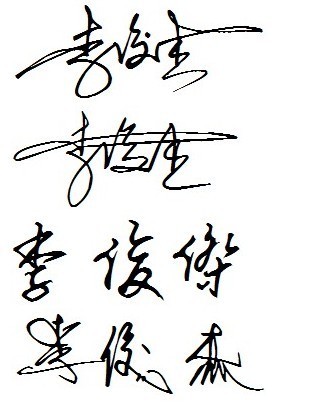 李俊杰
李俊杰
李俊傑
李俊杰